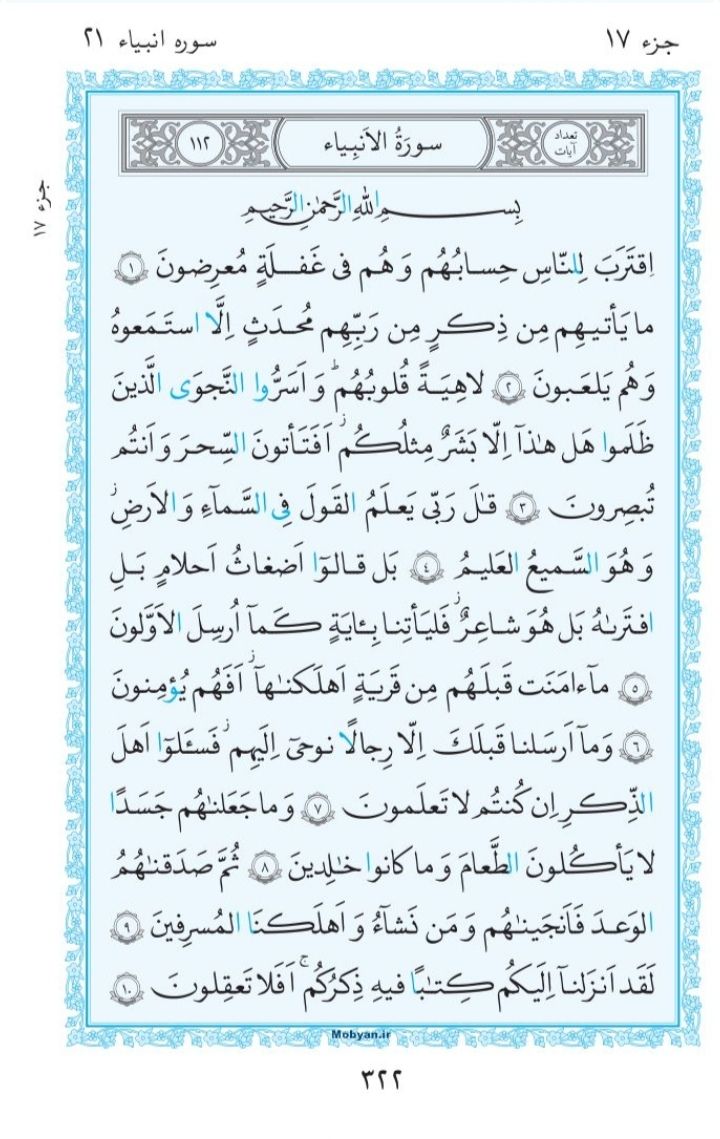 جزء ۱۷
سوره انبیاء ۲۱
جزء ۱۷
تعداد آیات
سورَةُ الاَنبِیاء
۱۱۲
بِسمِ اللهِ الرَّحمٰنِ الرَّحیمِ
اِقتَرَبَ لِلنّاسِ حِسابُهُم وَ هُم فی غَفلَةٍ مُعرِضونَ ﴿۱﴾
ما یَأتیهِم مِن ذِکرٍ مِن رَبِّهِم مُحدَثٍ اِلَّا استَمَعوهُ
وَ هُم یَلعَبونَ ﴿۲﴾ لاهِیَةً قُلوبُهُم ۗ وَ اَسَرُّوا النَّجوَی الَّذینَ
ظَلَموا هَل هٰذآ اِلّا بَشَرٌ مِثلُکُم ۖ اَفَتَأتونَ السِّحرَ وَ اَنتُم
تُبصِرونَ ﴿۳﴾ قالَ رَبّی یَعلَمُ القَولَ فِی السَّمآءِ وَ الاَرضِ ۖ
وَ هُوَ السَّمیعُ العَلیمُ ﴿۴﴾ بَل قالوٓا اَضغاثُ اَحلامٍ بَلِ
افتَرىٰهُ بَل هُوَ شاعِرٌ ۖ فَلیَأتِنا بِـٔایَةٍ کَمآ اُرسِلَ الاَوَّلونَ
﴿۵﴾ مآ ءامَنَت قَبلَهُم مِن قَریَةٍ اَهلَکنٰهآ ۖ اَفَهُم یُؤمِنونَ
﴿۶﴾ وَ مآ اَرسَلنا قَبلَكَ اِلّا رِجالًا نوحی اِلَیهِم ۖ فَسـَٔلوٓا اَهلَ
الذِّکرِ اِن کُنتُم لا تَعلَمونَ ﴿۷﴾ وَ ما جَعَلنٰهُم جَسَدًا
لا یَأکُلونَ الطَّعامَ وَ ما کانوا خٰلِدینَ ﴿۸﴾ ثُمَّ صَدَقنٰهُمُ
الوَعدَ فَاَنجَینٰهُم وَ مَن نَشآءُ وَ اَهلَکنَا المُسرِفینَ ﴿۹﴾
لَقَد اَنزَلنآ اِلَیکُم کِتٰبًا فیهِ ذِکرُکُم ۚ اَفَلا تَعقِلونَ ﴿۱۰﴾
Mobyan.ir
۳۲۲